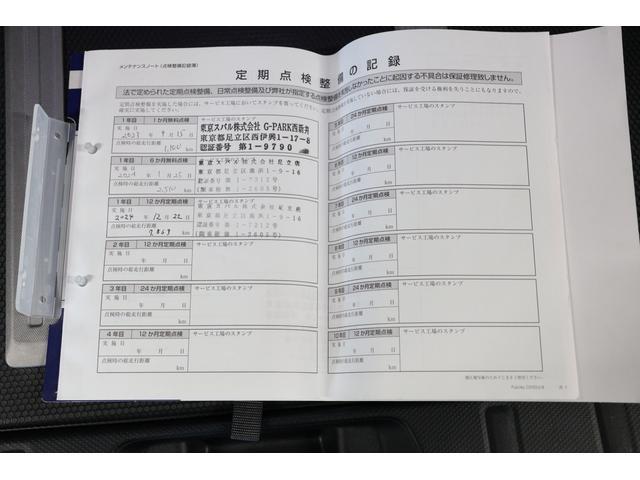 メンテナンスノート（点検整備記録簿）
定期点検整備の記録
法で定められた定期点検整備、日常点検整備及び弊社が指定する点検整備を実施しなかったことに起因する不具合は保証修理致しません。
定期点検整備を実施した場合には、サービス工場においてスタンプを貰ってください。
確実に実施してください。
1年目 1か月無料点検
サービス工場のスタンプ
実施日
2023年9月15日
点検時の総走行距離
km
東京スバル株式会社 G-PARK西新井
東京都足立区西伊興1-17-8
認証番号 第1-9790
1年目 6か月無料点検
実施日
2024年1月25日
点検時の総走行距離
2,510 km
東京スバル株式会社足立店
1年目 12か月定期点検
サービス工場のスタンプ
実施日
2024年12月22日
点検時の総走行距離
km
2年目 12か月定期点検
サービス工場のスタンプ
実施日
年 月 日
点検時の総走行距離
km
3年目 24か月定期点検
サービス工場のスタンプ
実施日
年 月 日
点検時の総走行距離
km
4年目 12か月定期点検
サービス工場のスタンプ
実施日
年 月 日
点検時の総走行距離
km
24か月定期点検
サービス工場のスタンプ
年 月 日
km
12か月定期点検
サービス工場のスタンプ
年 月 日
km
24か月定期点検
サービス工場のスタンプ
年 月 日
km
12か月定期点検
サービス工場のスタンプ
年 月 日
km
24か月定期点検
サービス工場のスタンプ
年 月 日
km
10年目 12か月定期点検
サービス工場のスタンプ
実施日
年 月 日
点検時の総走行距離
km